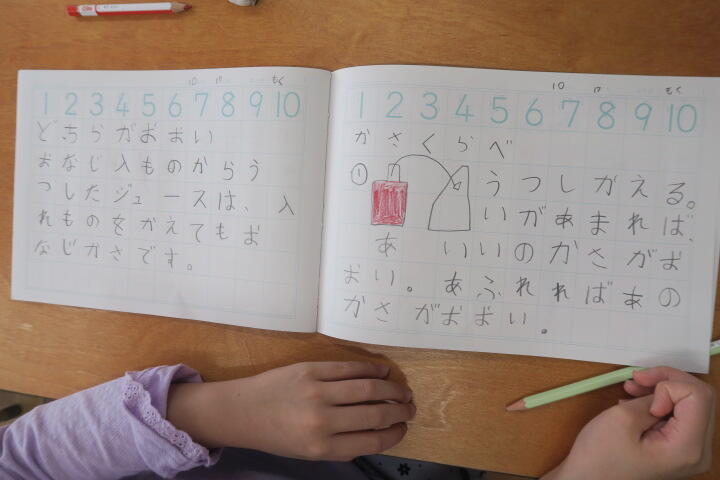 10 17 もく
1 2 3 4 5 6 7 8 9 10
どちらがおおい
おなじ入ものからう
つしたジュースは、入
れものをかえてもお
なじかさです。
10 17 もく
1 2 3 4 5 6 7 8 9 10
かさくらべ
① うつしかえる。
いがあまれば、
あ いいのかさがお
おい。あふれればあの
かさがおおい。